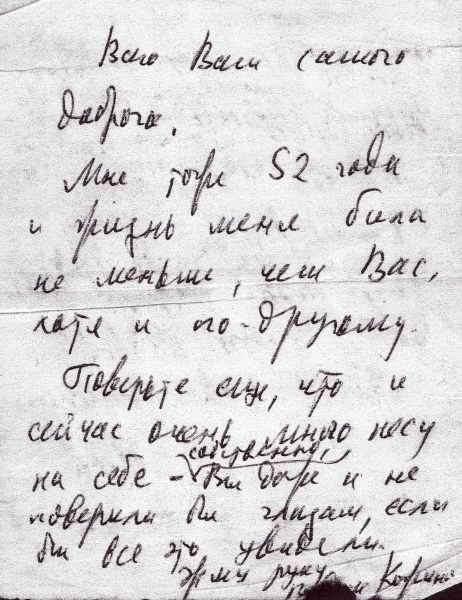 Всего Вам самого
доброго.
Мне тоже 52 года
и жизнь меня била
не меньше, чем Вас,
хотя и по-другому.
Поверьте еще, что и
сейчас очень много несу
собственно,
на себе - Вы даже и не
поверили бы глазам, если
бы все это увидели.
Жму руку